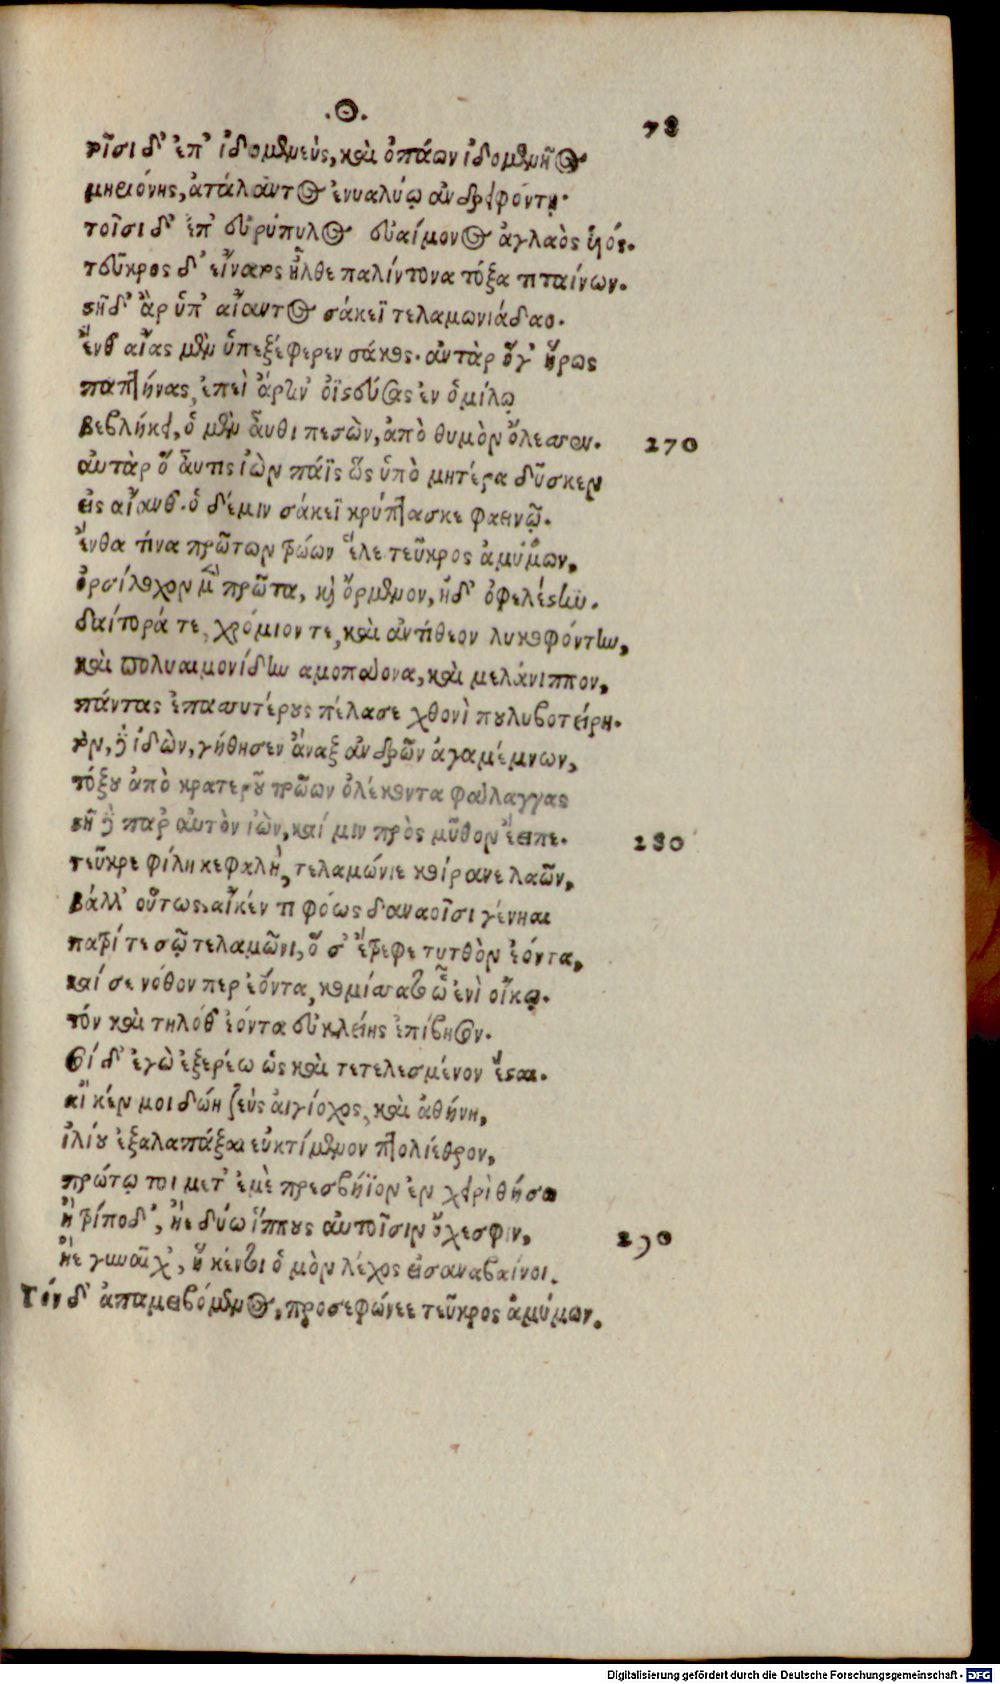 .Θ.
78
τοῖσι δ' ἐπ' ἰδομενεὺς, καὶ ὀπάων ἰδομενῆος
μηριόνης, ἀτάλαντος ἐνυαλίῳ ἀνδρειφόντῃ·
τοῖσι δ' ἐπ' εὐρύπυλος εὐαίμονος ἀγλαὸς υἱός.
τεῦκρος δ' εἴνατος ἦλθε παλίντονα τόξα τιταίνων.
στῆ δ' ἂρ ὑπ' αἴαντος σάκεϊ τελαμωνιάδαο.
ἔνθ' αἴας μὲν ὑπεξέφερεν σάκος. αὐτὰρ ὅγ' ἥρως
παπτήνας, ἐπεὶ ἄρ τιν' ὀϊστεύσας ἐν ὁμίλῳ
βεβλήκει, ὁ μὲν αὖθι πεσὼν, ἀπὸ θυμὸν ὄλεσσεν. 270
αὐτὰρ ὃ αὖτις ἰὼν πάϊς ὣς ὑπὸ μητέρα δῦσκεν
εἰς αἴανθ'. ὁ δέ μιν σάκεϊ κρύπτασκε φαεινῷ.
ἔνθα τίνα πρῶτον τρώων ἕλε τεῦκρος ἀμύμων,
ὀρσίλοχον μὲν πρῶτα, καὶ ὄρμενον, ἠδ' ὀφελέστην.
δαίτορά τε, χρόμιον τε, καὶ ἀντίθεον λυκοφόντην,
καὶ πολυαιμονίδην αμοπάονα, καὶ μελάνιππον,
πάντας ἐπασσυτέρους πέλασε χθονὶ πουλυβοτείρῃ.
τὸν, δὲ ἰδὼν, γήθησεν ἄναξ ἀνδρῶν ἀγαμέμνων,
τόξου ἀπὸ κρατεροῦ τρώων ὀλέκοντα φάλαγγας
στῆ δὲ παρ' αὐτὸν ἰὼν, καί μιν πρὸς μῦθον ἔειπε. 280
τεῦκρε φίλη κεφαλὴ, τελαμώνιε κοίρανε λαῶν,
βάλλ' οὕτως. αἴκέν τι φόως δαναοῖσι γένηαι
πατρί τε σῷ τελαμῶνι, ὅ σ' ἔτρεφε τυτθὸν ἐόντα,
καί σε νόθον περ ἐόντα, κομίσσατο ᾧ ἐνὶ οἴκῳ.
τόν καὶ τηλόθ' ἐόντα εὐκλείης ἐπίβησον.
σοί δ' ἐγὼ ἐξερέω ὡς καὶ τετελεσμένον ἔσται.
αἴ κέν μοι δώῃ ζεὺς αἰγίοχος, καὶ ἀθήνη,
ἰλίου ἐξαλαπάξαι εὐκτίμενον πτολίεθρον,
πρώτῳ τοι μετ' ἐμὲ πρεσβήϊον ἐν χειρὶ θήσω
ἢ τρίποδ', ἠὲ δύω ἵππους αὐτοῖσιν ὄχεσφιν, 290
ἠὲ γυναῖχ', ἥ κέν τοι ὁ μὸν λέχος εἰσαναβαίνοι.
Τόν δ' ἀπαμειβόμενος, προσεφώνεε τεῦκρος ἀμύμων.
Digitalisierung gefördert durch die Deutsche Forschungsgemeinschaft - DFG